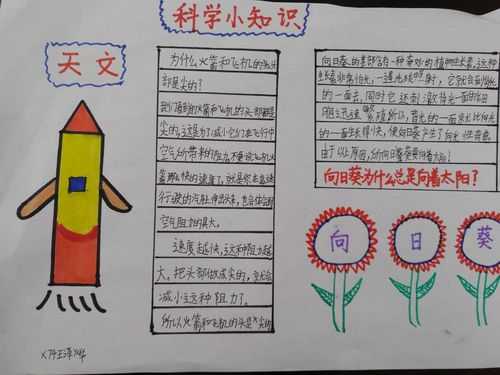 科学小知识
天文
为什么火箭和飞机的头
都是尖的?
我们看到的火箭和飞机的头都是
尖的,这是为了减小它们在飞行中
空气所带来的阻力,不要说飞机火
箭那么快的速度了,就是你在高速
行驶的汽车上伸出头来,也会体会到
空气阻力的巨大。
速度越快,这种阻力越
大,把头部做成尖的,
减小这种阻力了。
所以火箭和飞机的头是尖的
向日葵的茎部含有一种奇妙的植物生长素,这种
生长素非常怕光,一遇光线照射,它就会到背光
的一面去,同时它还刺激背光一面的细胞
迅速繁殖,所以,背光的一面就比向光
的一面生长得快,使向日葵产生了向光性弯曲
由于以上原因,
向日葵为什么总是向着太阳?
向 日 葵